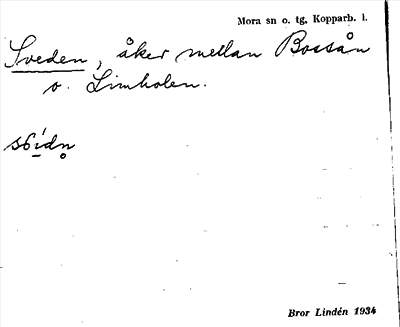 Mora sn o. tg, Kopparb. l.
Sveden, åker mellan Bossån
o. Limholen.
Bror Lindén 1934